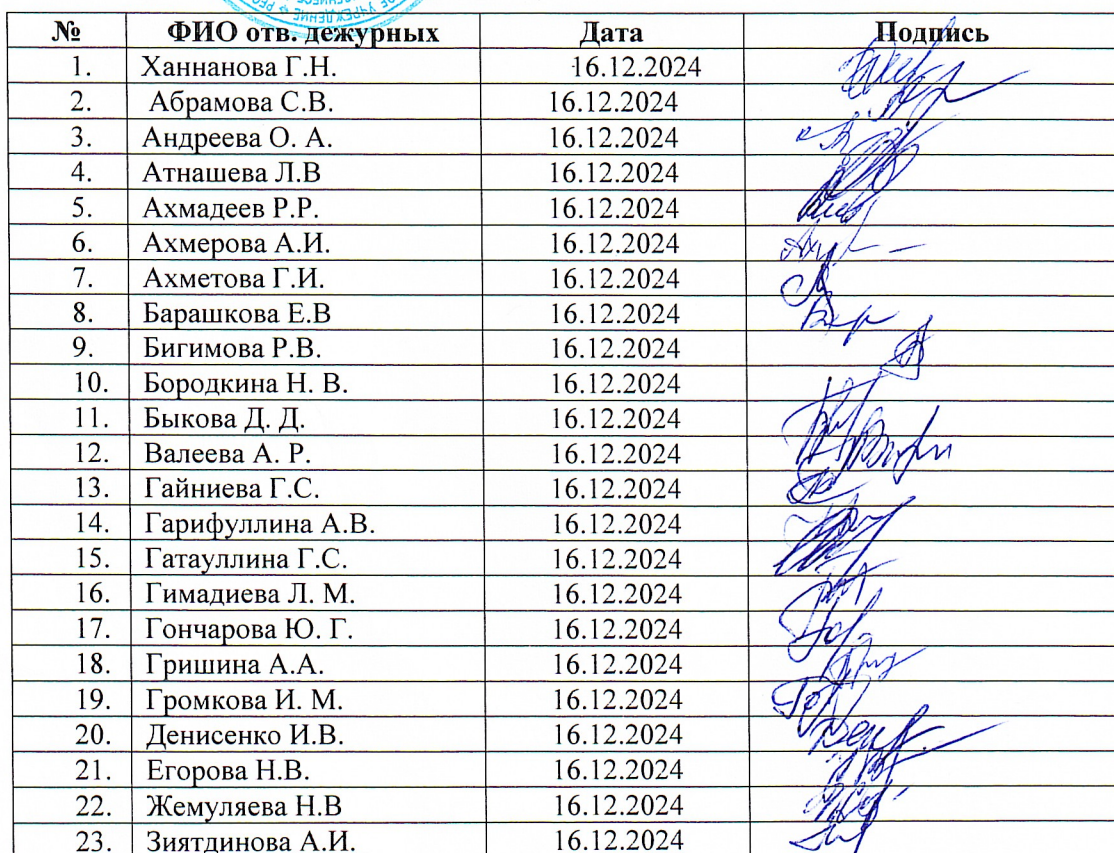 УЧРЕЖДЕНИЕ
№ ФИО отв. дежурных Дата Подпись
1. Ханнанова Г.Н. 16.12.2024
2. Абрамова С.В. 16.12.2024
3. Андреева О. А. 16.12.2024
4. Атнашева Л.В 16.12.2024
5. Ахмадеев Р.Р. 16.12.2024
6. Ахмерова А.И. 16.12.2024
7. Ахметова Г.И. 16.12.2024
8. Барашкова Е.В 16.12.2024
9. Бигимова Р.В. 16.12.2024
10. Бородкина Н. В. 16.12.2024
11. Быкова Д. Д. 16.12.2024
12. Валеева А. Р. 16.12.2024
13. Гайниева Г.С. 16.12.2024
14. Гарифуллина А.В. 16.12.2024
15. Гатауллина Г.С. 16.12.2024
16. Гимадиева Л. М. 16.12.2024
17. Гончарова Ю. Г. 16.12.2024
18. Гришина А.А. 16.12.2024
19. Громкова И. М. 16.12.2024
20. Денисенко И.В. 16.12.2024
21. Егорова Н.В. 16.12.2024
22. Жемуляева Н.В 16.12.2024
23. Зиятдинова А.И. 16.12.2024